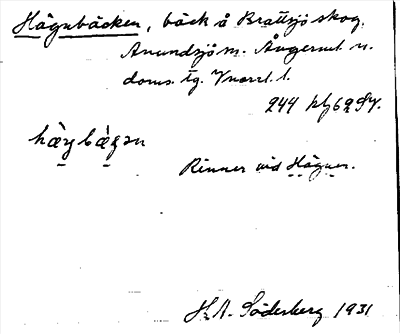 Hägnbäcken, bäck å Brattsjö skog.
Anundsjö sn. Ångerml. n.
doms. tg. Vnorrl. l.
244
Rinner vid Hägner.
H. A. Söderberg 1931